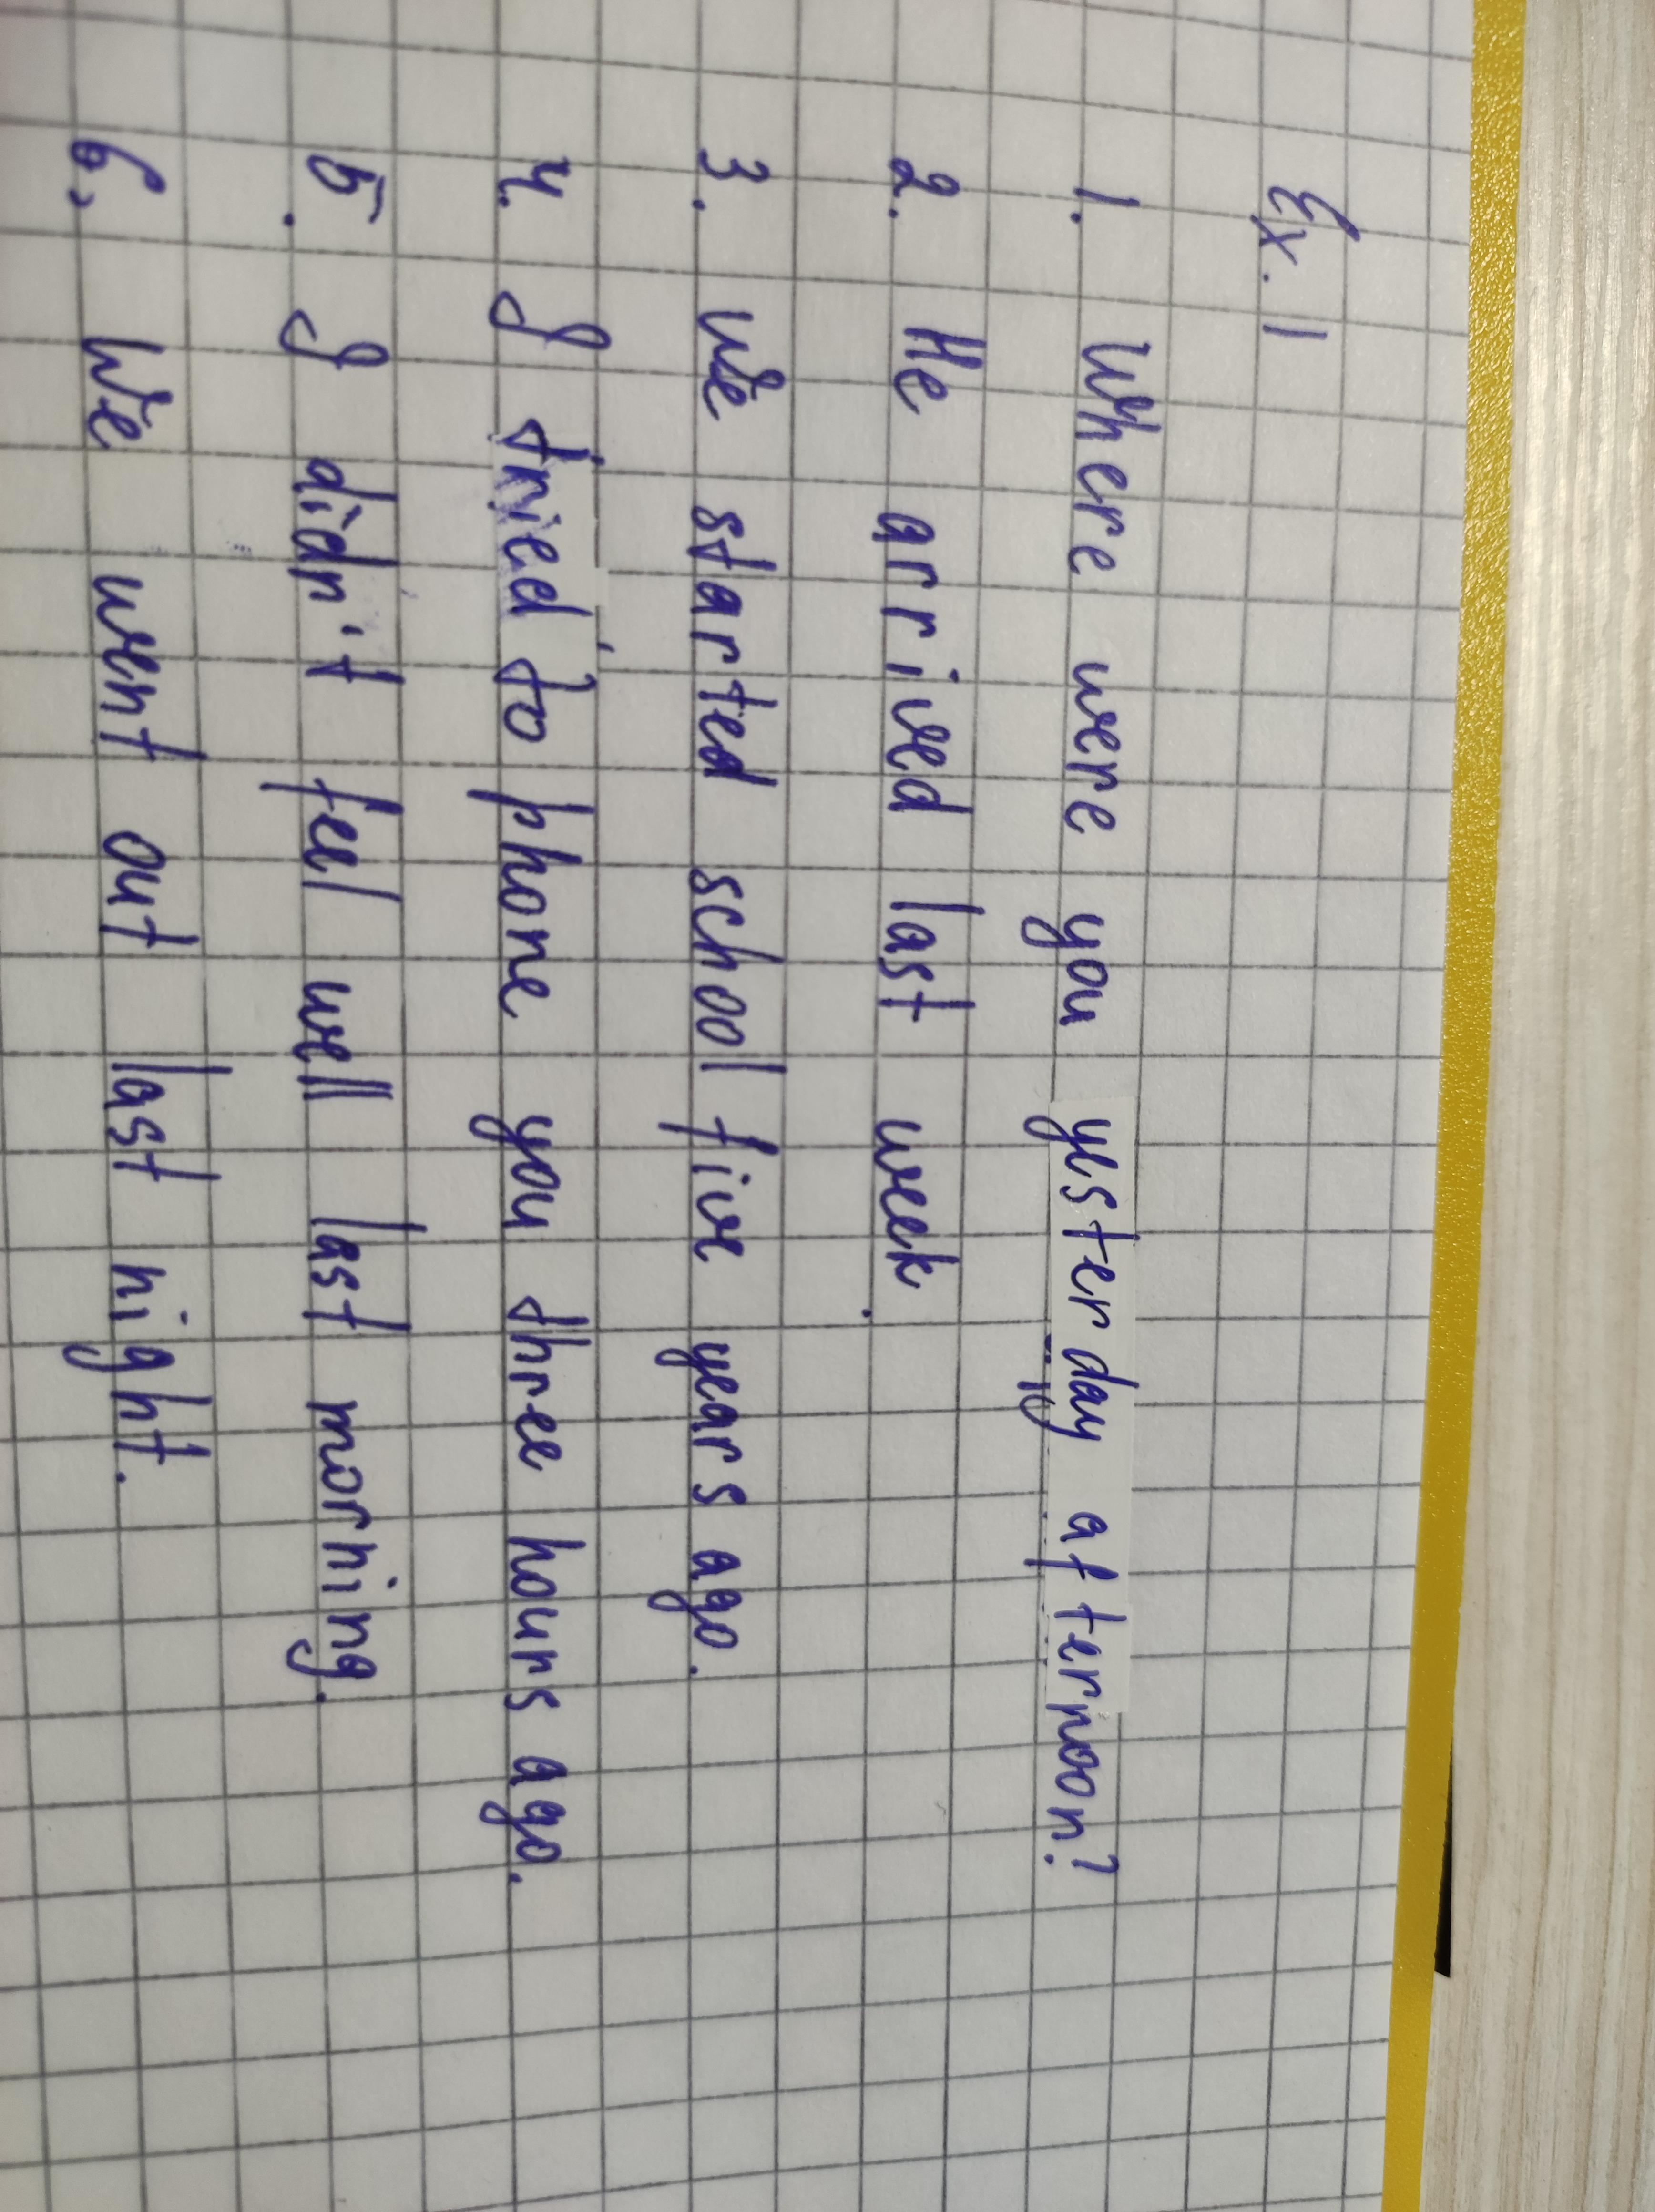 Ex. 1
1. Where were you yesterday afternoon?
2. He arrived last week.
3. We started school five years ago.
4. I tried to phone you three hours ago.
5. I didn't feel well last morning.
6. We went out last night.